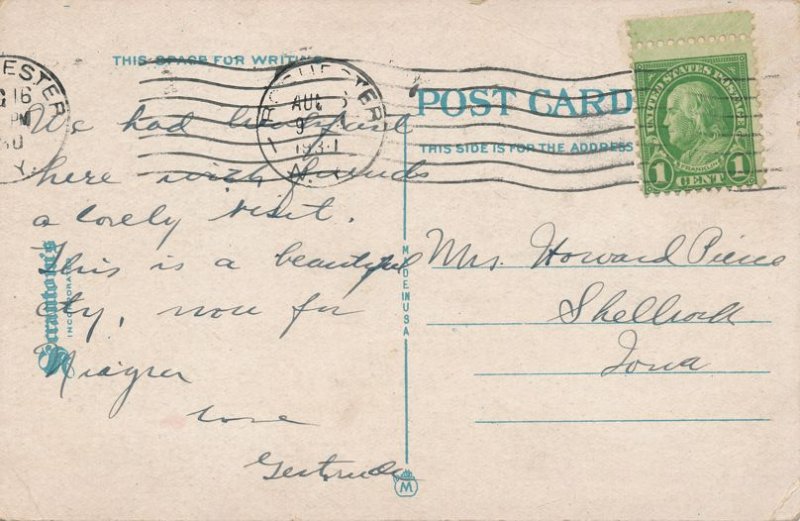 THIS SPACE FOR WRITING
ROCHESTER
AUG
1931
N.
ESTER
16
PM
POST CARD
THIS SIDE IS FOR THE ADDRESS
UNITED STATES POSTAGE
FRANKLIN
1 CENT 1
We had
here with friends
a lovely visit.
This is a beautiful
city, now for
Niagra
Love
Gertrude
Mrs. Howard Pierce
Shellrock
Iowa
MADE IN USA
Scrantom's
INCORPORATED
M